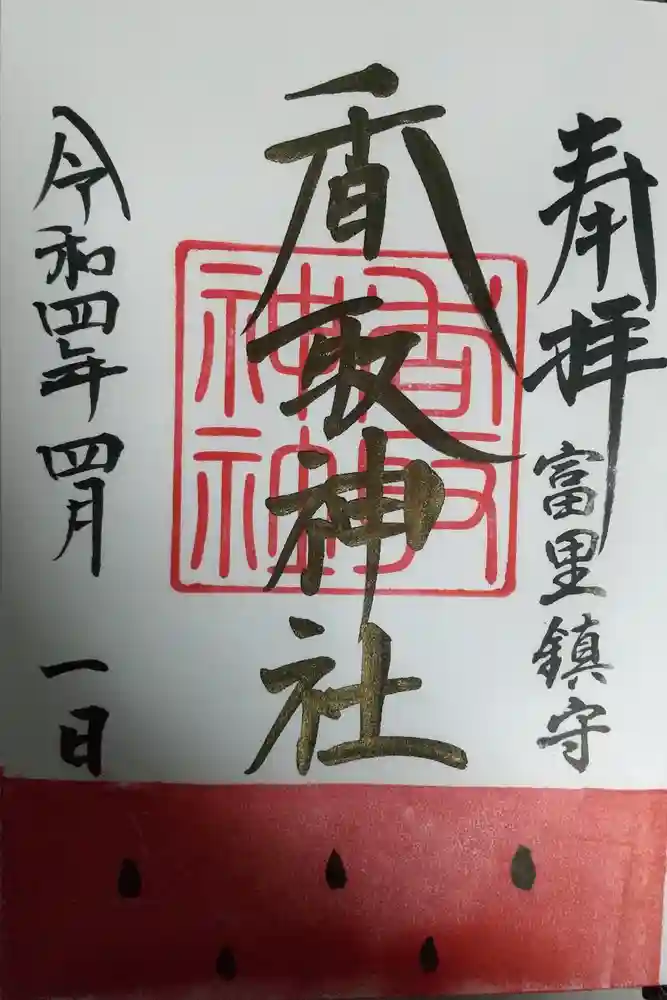 奉拝
富里鎮守
香取神社
香取神社
令和四年四月一日